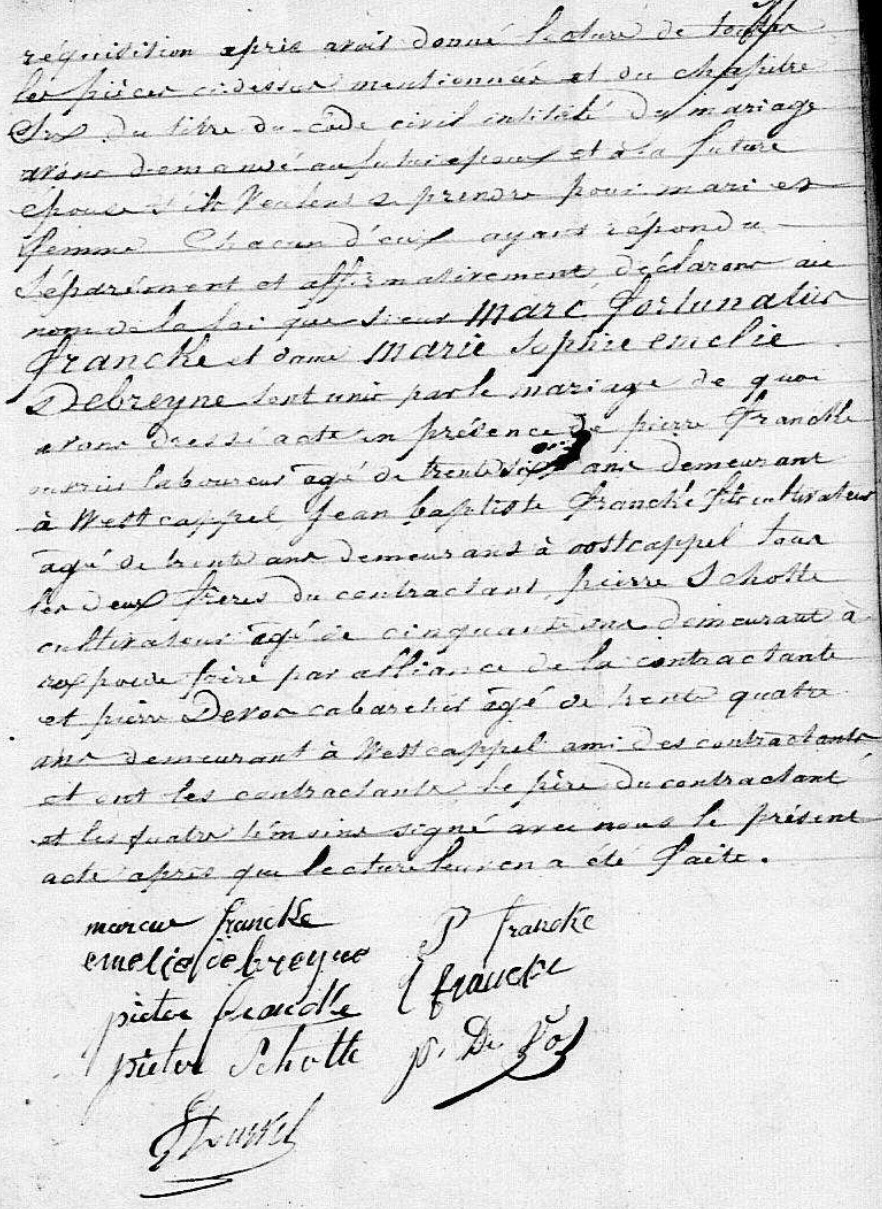 réquisition apris avoir donné lecture de toutes
les pièces cidessus mentionnées et du chapitre
Six du titre du Code civil intitulé du mariage
avons demandé au futur époux et à la future
épouse s'ils veulent se prendre pour mari et
femme Chacun d'eux ayant répondu
Séparément et affirmativement déclarons au
nom de la loi que sieur Marc fortunatus
francke et dame Marie Sophie emelie
Debreyne sont unis par le mariage de quoi
avons dressé acte en présence de pierre francke
laboureur âgé de trente six ans demeurant
à Westcappel Jean baptiste francke fils cultivateur
âgé de trente ans demeurans à oostcappel tous
les deux frères du contractant, pierre Schotte
cultivateur âgé de cinquante ans demeurant à
rexpoede frère par alliance de la contractante
et pierre Devos cabaretier âgé de trente quatre
ans demeurant à Westcappel ami des contractants
et ont les contractants, le père du contractant
et les quatre témoins signé avec nous le présent
acte après que lecture leur en a été faite.
marcus francke P francke
emelie debreyne J francke
pieter francke p. De Vos
pieter Schotte